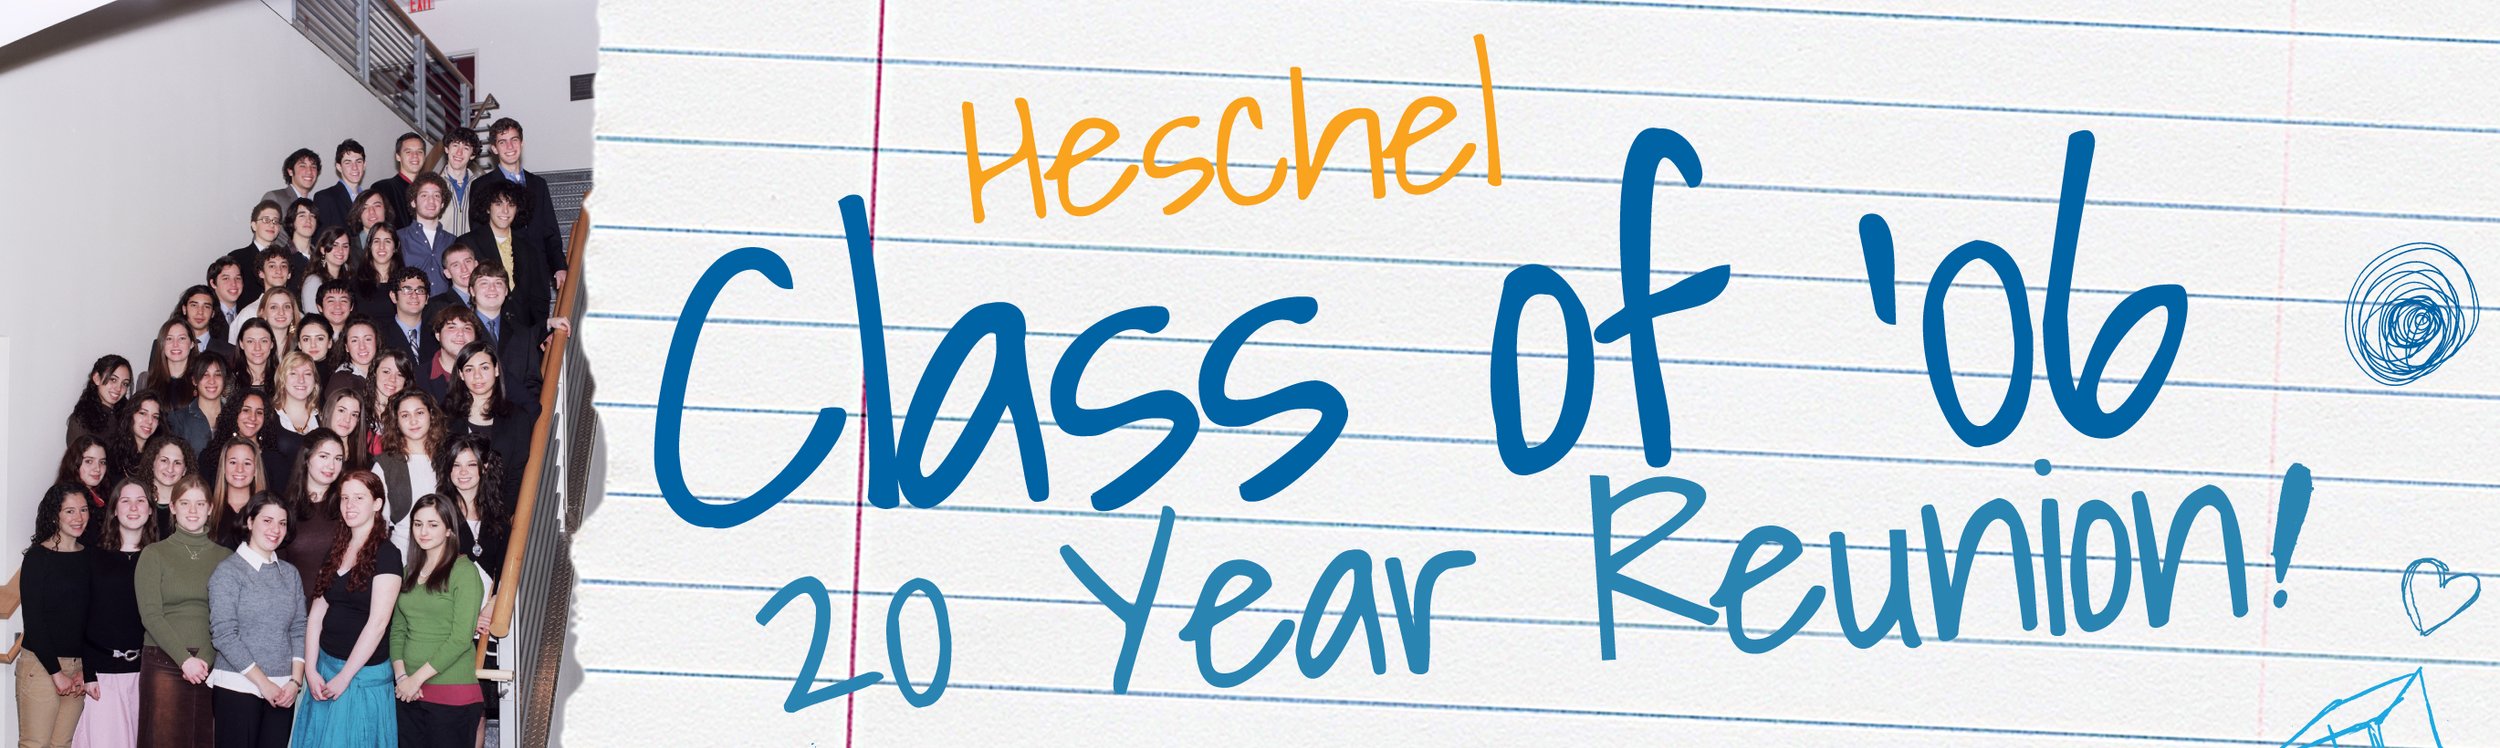 EXIT
Heschel
Class of '06
20 Year Reunion!